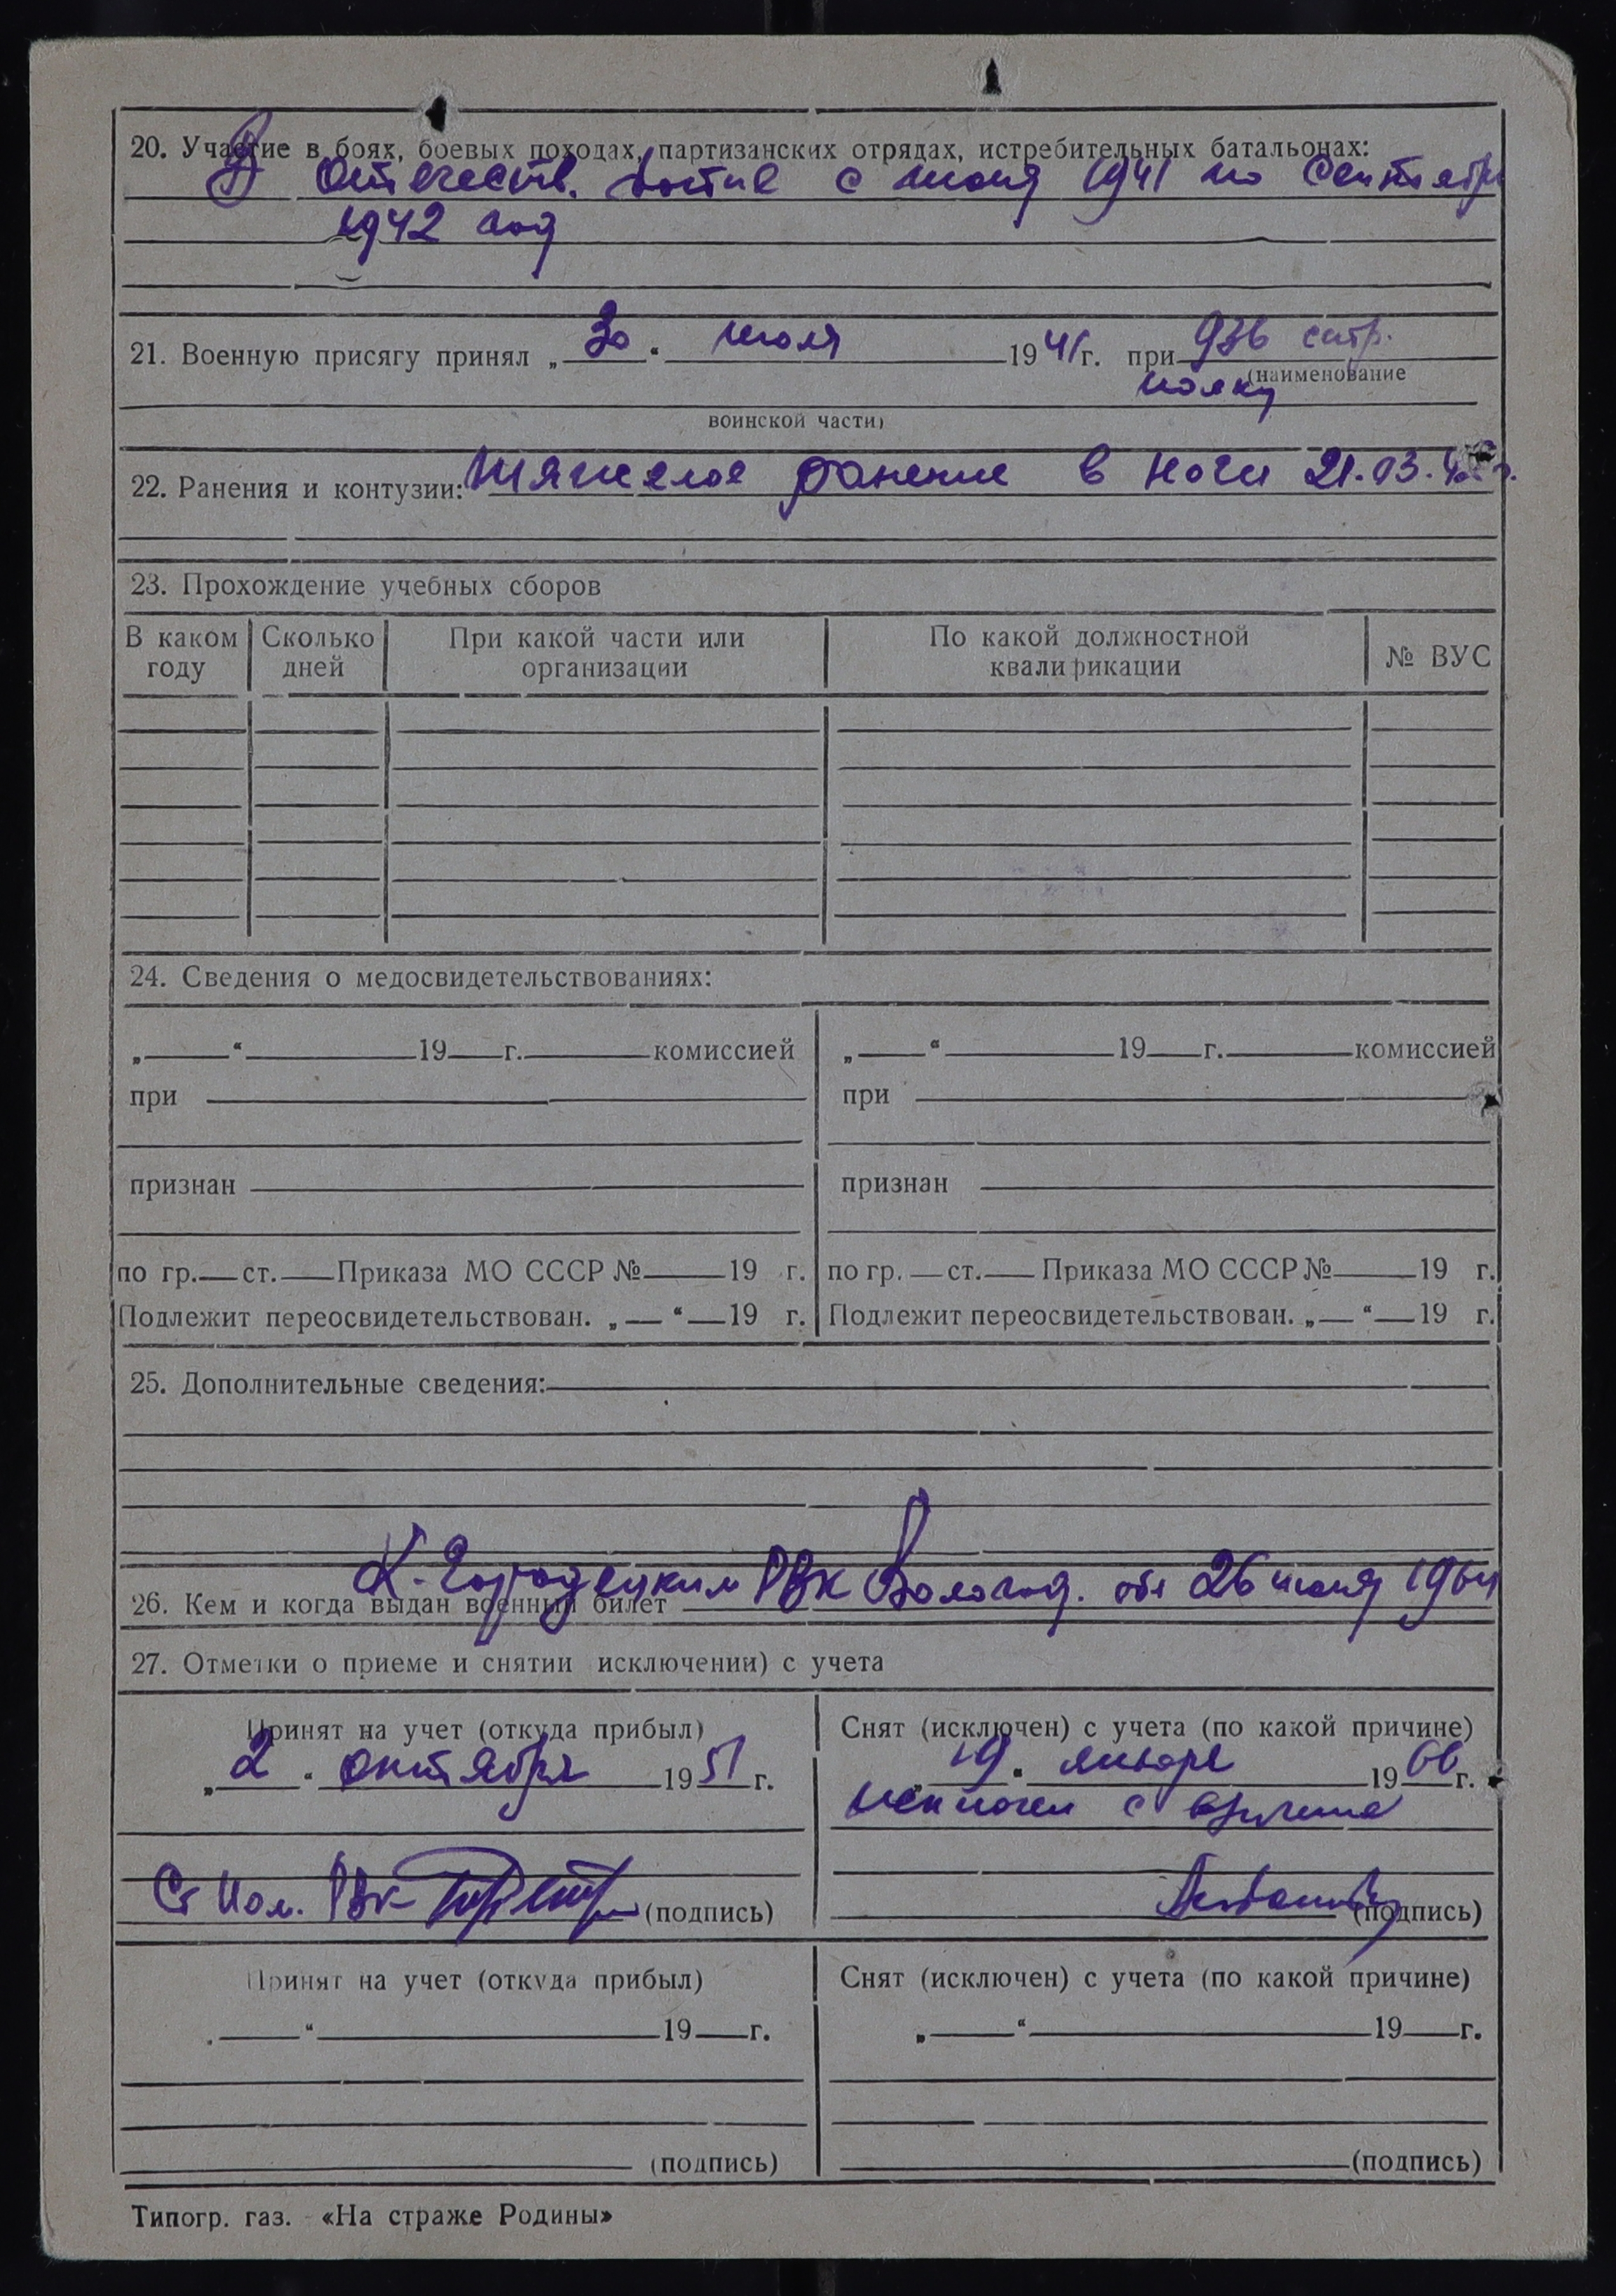 20. Участие в боях, боевых походах, партизанских отрядах, истребительных батальонах:
В Отечеств. войне с июля 1941 по Сентябрь
1942 год
21. Военную присягу принял „30“ июля 1941г. при 936 стр.
(наименование
полку
воинской части)
22. Ранения и контузии: тяжелое ранение в ноги 21.03.42 г.
23. Прохождение учебных сборов
В каком году Сколько дней При какой части или организации По какой должностной квалификации № ВУС
24. Сведения о медосвидетельствованиях:
„ “ 19 г. комиссией „ “ 19 г. комиссией
при при
признан признан
по гр. ст. Приказа МО СССР № 19 г. по гр. ст. Приказа МО СССР № 19 г.
Подлежит переосвидетельствован. „ “ 19 г. Подлежит переосвидетельствован. „ “ 19 г.
25. Дополнительные сведения:
26. Кем и когда выдан военный билет К-Городецким РВК Вологод. обл 26 июня 1964
27. Отметки о приеме и снятии исключении) с учета
Принят на учет (откуда прибыл) Снят (исключен) с учета (по какой причине)
„2“ октября 1951 г. „19“ января 1966 г.
исключен с
Ст Пом. РВК (подпись) (подпись)
Принят на учет (откуда прибыл) Снят (исключен) с учета (по какой причине)
„ “ 19 г. „ “ 19 г.
(подпись) (подпись)
Типогр. газ. «На страже Родины»